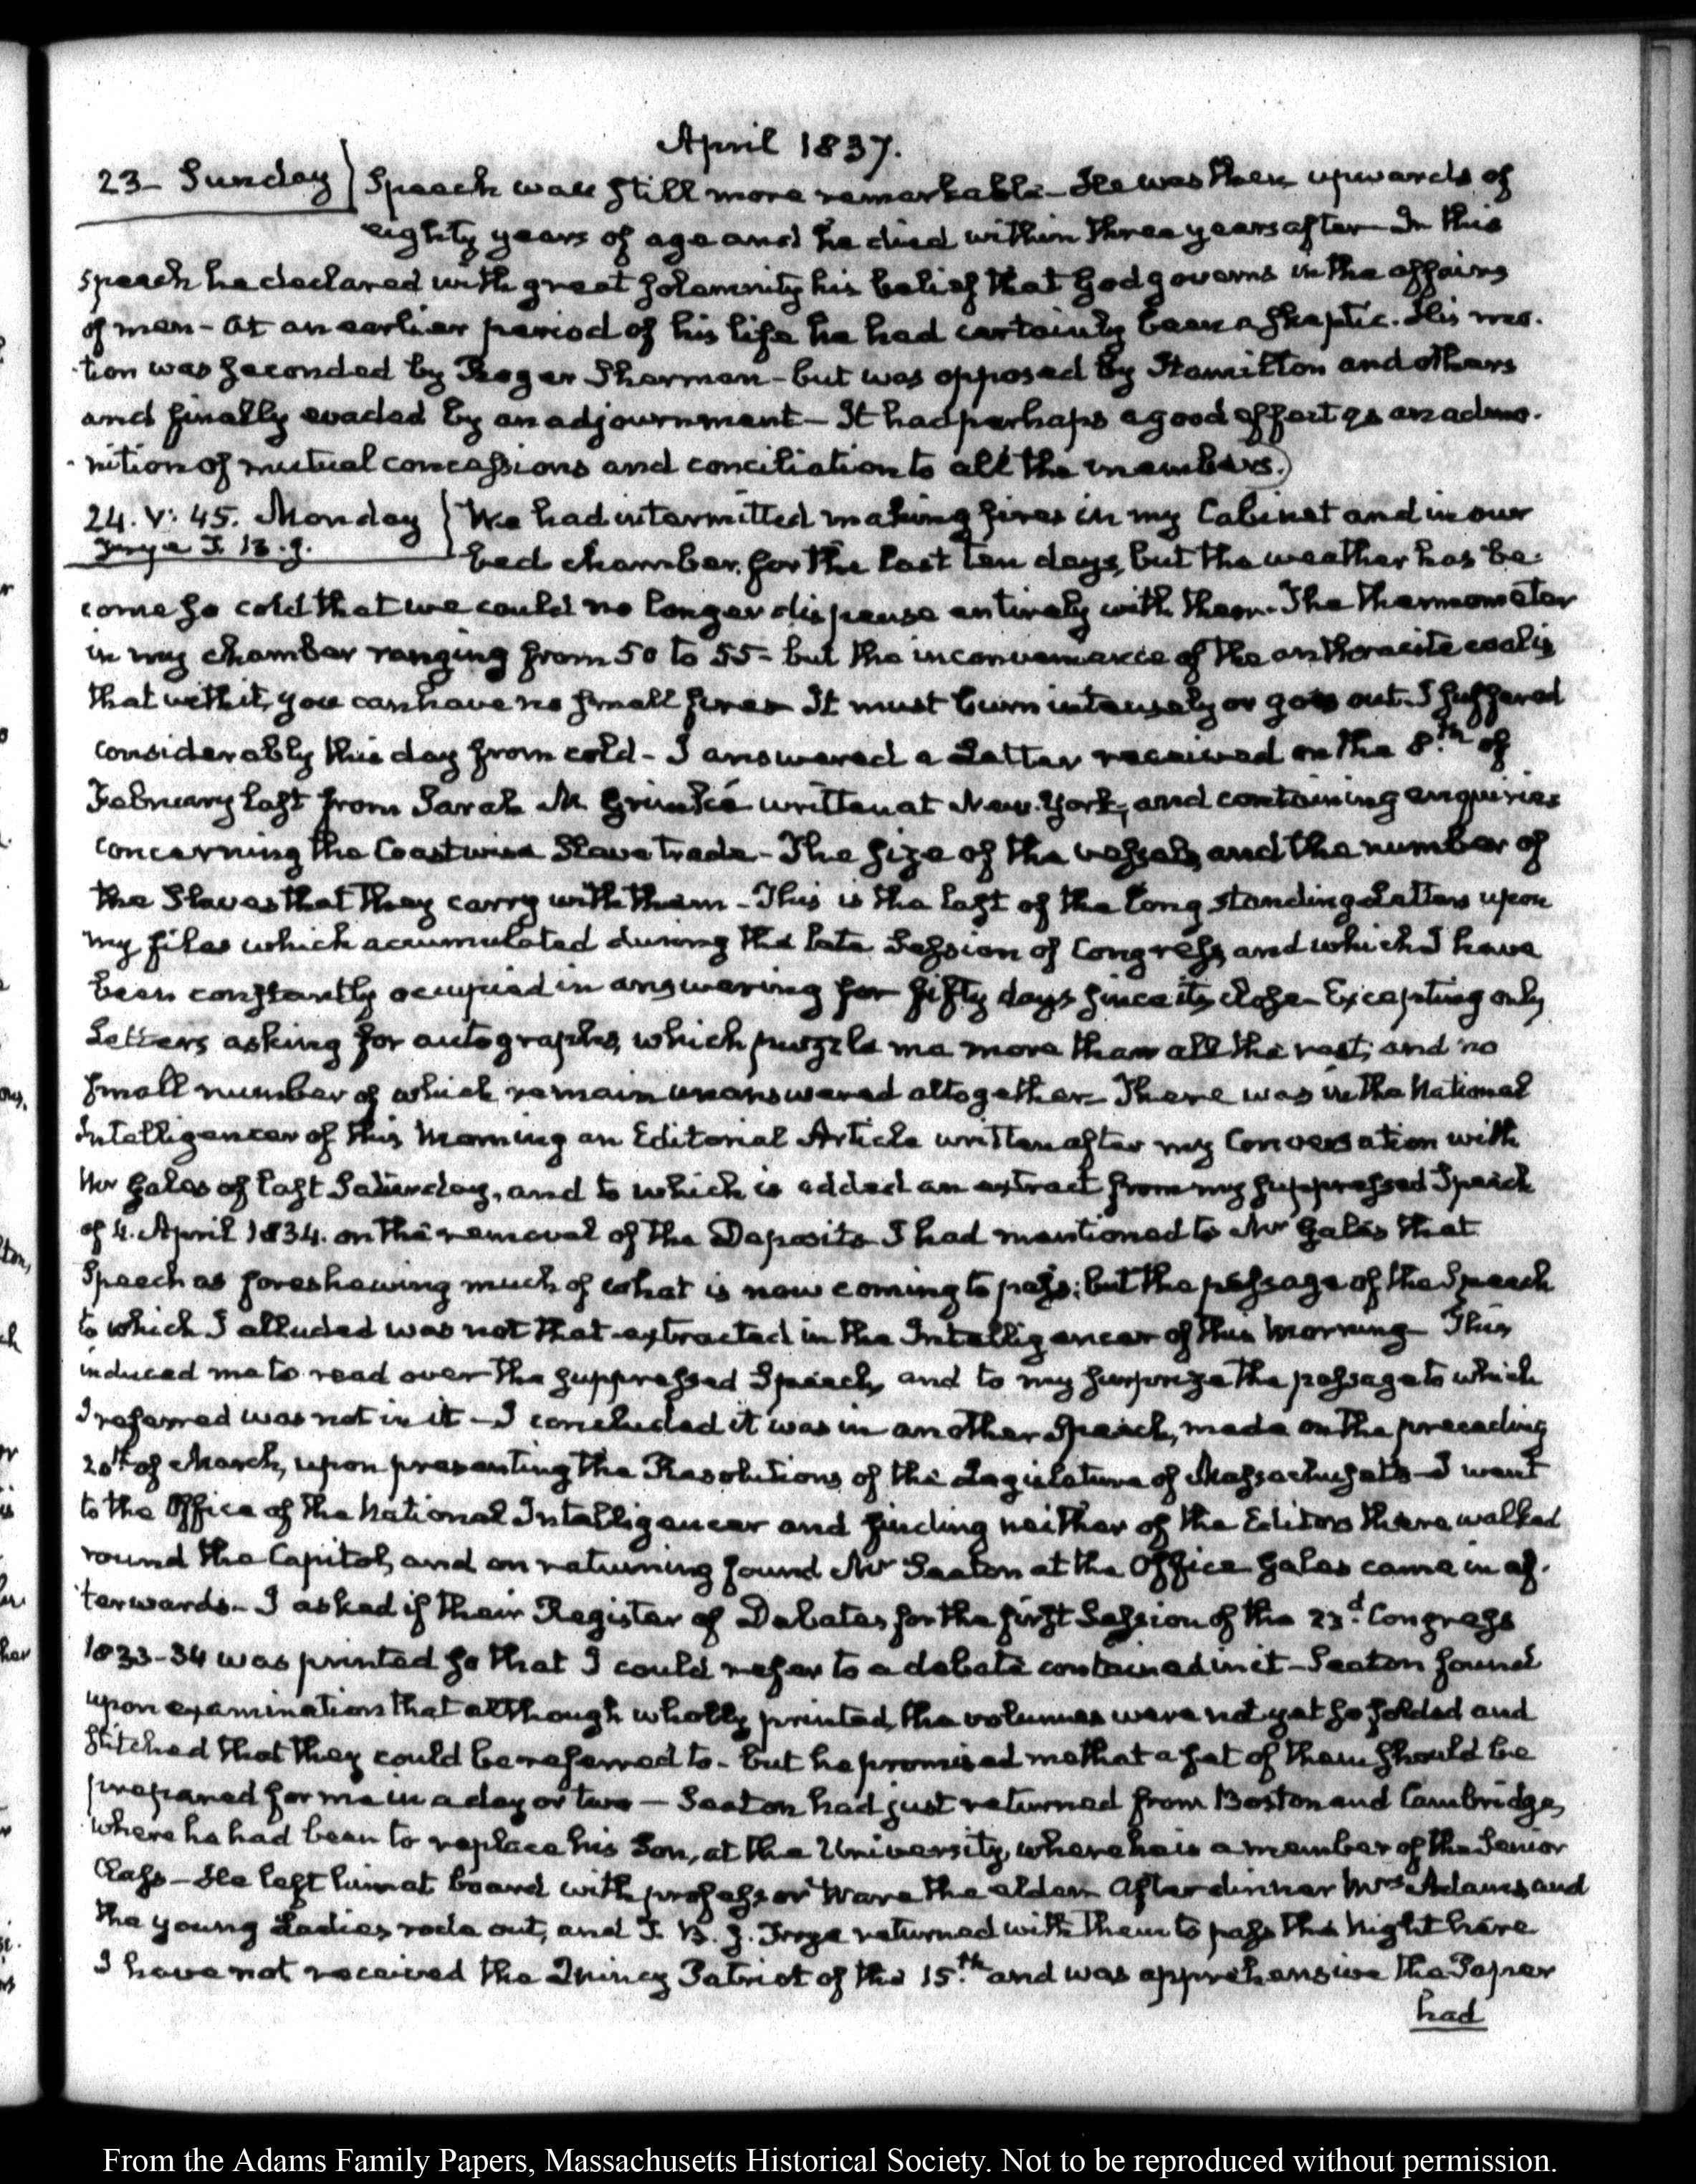 April 1837.
23- Sunday } Speech was still more remarkable- He was then upwards of
eighty years of age and he died within three years after- In this
speech he declared with great solemnity his belief that God governs in the affairs
of men- at an earlier period of his life he had certainly been a skeptic. His mo-
-tion was seconded by Roger Sherman- but was opposed by Hamilton and others
and finally evaded by an adjournment- It had perhaps a good effect as an admo-
-nition of mutual concessions and conciliation to all the members.)
24. V: 45. Monday } We had intermitted making fires in my Cabinet and in our
Frye T. B. J. bed chamber, for the last ten days, but the weather has be-
come so cold that we could no longer dispense entirely with them. The thermometer
in my chamber ranging from 50 to 55- but the inconvenience of the anthracite coal is
that with it, you can have no small fires- It must burn intensely or goes out. I suffered
considerably this day from cold- I answered a Letter received on the 8.th of
February last from Sarah M Grimké written at New-York, and containing enquiries
concerning the Coastwise Slave trade- The size of the vessels, and the number of
the Slaves that they carry with them- This is the last of the long standing Letters upon
my files which accumulated during the late Session of Congress, and which I have
been constantly occupied in answering for fifty days since its close- Excepting only
Letters asking for autographs, which puzzle me more than all the rest, and no
small number of which remain unanswered altogether- There was in the National
Intelligencer of this Morning an Editorial Article written after my Conversation with
Mr Gales of last Saturday, and to which is added an extract from my suppressed Speech
of 4. April 1834. on the removal of the Deposits- I had mentioned to Mr Gales that
Speech as foreshewing much of what is now coming to pass; but the passage of the Speech
to which I alluded was not that extracted in the Intelligencer of this Morning- This
induced me to read over the suppressed Speech, and to my surprize the passage to which
I referred was not in it- I concluded it was in another Speech, made on the preceding
20th of March, upon presenting the Resolutions of the Legislature of Massachusetts- I went
to the Office of the National Intelligencer and finding neither of the Editors there, walked
round the Capitol, and on returning found Mr Seaton at the Office- Gales came in af-
terwards- I asked if their Register of Debates for the first Session of the 23.d Congress
1833-34 was printed so that I could refer to a debate contained in it- Seaton found
upon examination that although wholly printed, the volumes were not yet so folded and
stitched that they could be referred to- but he promised me that a set of them should be
prepared for me in a day or two- Seaton had just returned from Boston and Cambridge,
where he had been to replace his Son, at the University, where he is a member of the Senior
Class- He left him at board with professor Ware the elder- After dinner Mrs Adams and
the young Ladies rode out, and T. B. J. Frye returned with them to pass the Night here
I have not received the Quincy Patriot of the 15.th and was apprehensive the Paper
had
From the Adams Family Papers, Massachusetts Historical Society. Not to be reproduced without permission.